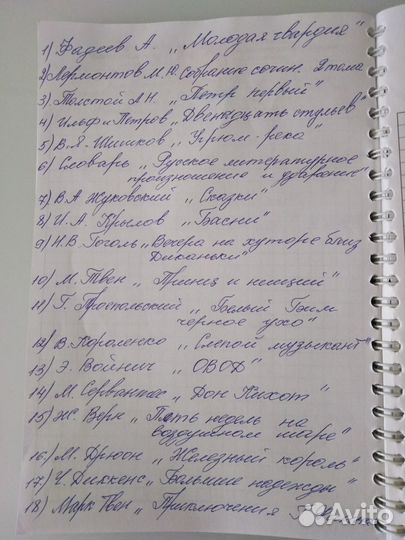 1) Фадеев А. „Молодая гвардия"
2) Лермонтов М.Ю. Собрание сочин. 2 тома
3) Толстой А.Н. „Петр первый"
4) Ильф и Петров „Двенадцать стульев"
5) В.Я. Шишков „Угрюм-река"
6) Словарь „Русское литературное
произношение и ударение"
7) В.А Жуковский „Сказки"
8) И.А. Крылов „Басни"
9) Н.В. Гоголь „Вечера на хуторе близ
Диканьки"
10) М. Твен „Принц и нищий"
11) Г. Троепольский „Белый Бим
черное ухо"
12) В. Короленко „Слепой музыкант"
13) Э. Войнич „ОВОД"
14) М. Сервантес „Дон Кихот"
15) Ж. Верн „Пять недель на
воздушном шаре"
16) М. Дрюон „Железный король"
17) Ч. Диккенс „Большие надежды"
18) Марк Твен „Приключения
Avito